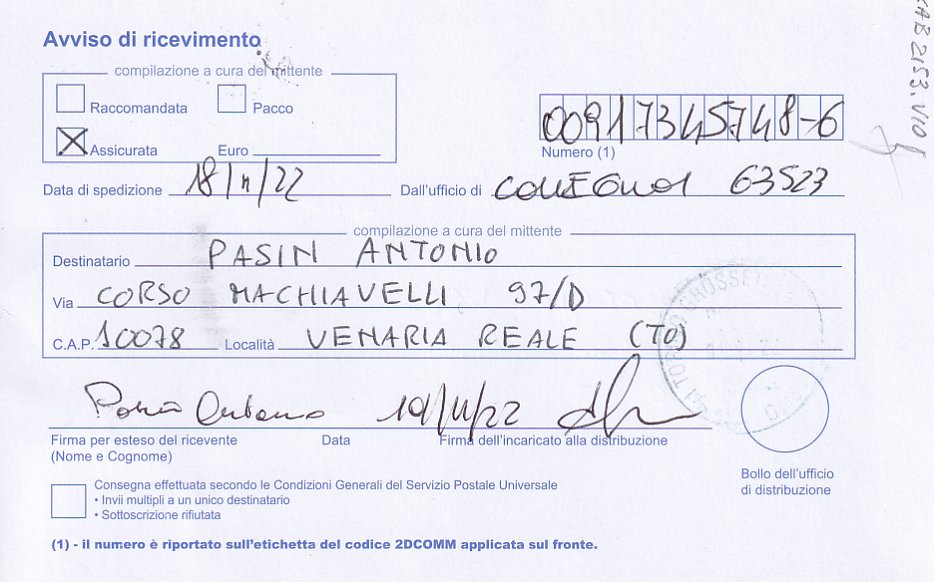 Avviso di ricevimento
compilazione a cura del mittente
Raccomandata Pacco
Assicurata Euro
00917345748-6
Numero (1)
Data di spedizione 18/11/22 Dall'ufficio di 63523
compilazione a cura del mittente
Destinatario PASIN ANTONIO
Via CORSO MACHIAVELLI 97/D
C.A.P. 10078 Località VENARIA REALE (TO)
Firma per esteso del ricevente Data Firma dell'incaricato alla distribuzione
(Nome e Cognome)
Bollo dell'ufficio
di distribuzione
Consegna effettuata secondo le Condizioni Generali del Servizio Postale Universale
• Invii multipli a un unico destinatario
• Sottoscrizione rifiutata
(1) - il numero è riportato sull'etichetta del codice 2DCOMM applicata sul fronte.